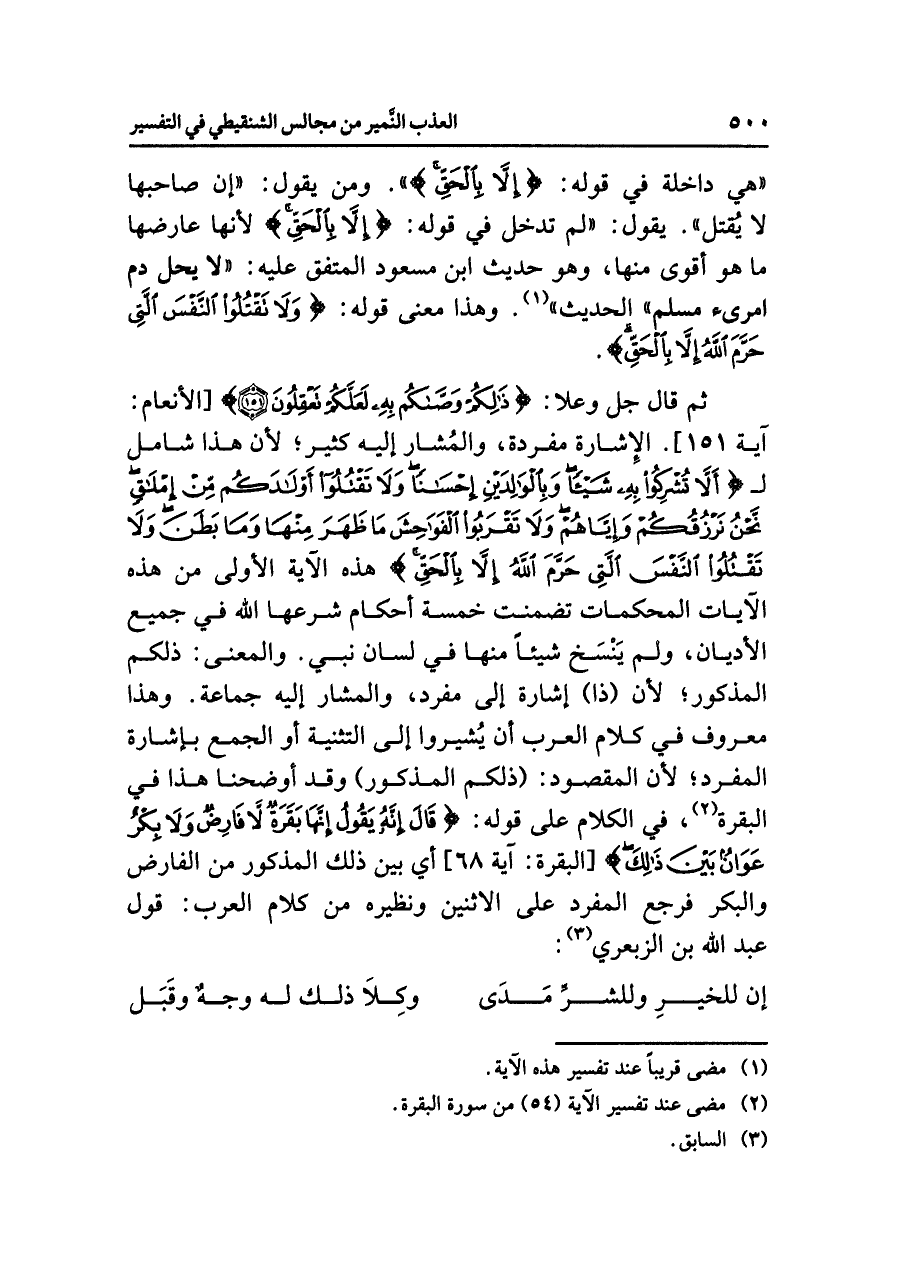 ٥٠٠ العذب النَّمير من مجالس الشنقيطي في التفسير
«هي داخلة في قوله: ﴿ إِلَّا بِالْحَقِّ ﴾». ومن يقول: «إن صاحبها
لا يُقتل». يقول: «لم تدخل في قوله: ﴿ إِلَّا بِالْحَقِّ ﴾ لأنها عارضها
ما هو أقوى منها، وهو حديث ابن مسعود المتفق عليه: «لا يحل دم
امرىء مسلم» الحديث»(١). وهذا معنى قوله: ﴿ وَلَا تَقْتُلُوا۟ ٱلنَّفْسَ ٱلَّتِى
حَرَّمَ ٱللَّهُ إِلَّا بِٱلْحَقِّ ﴾.
ثم قال جل وعلا: ﴿ ذَٰلِكُمْ وَصَّىٰكُم بِهِۦ لَعَلَّكُمْ تَعْقِلُونَ ١٥١ ﴾ [الأنعام:
آية ١٥١]. الإِشارة مفردة، والمُشار إليه كثير؛ لأن هذا شامل
لـ ﴿ أَلَّا تُشْرِكُوا۟ بِهِۦ شَيْـًٔا ۖ وَبِٱلْوَٰلِدَيْنِ إِحْسَـٰنًا ۖ وَلَا تَقْتُلُوٓا۟ أَوْلَـٰدَكُم مِّنْ إِمْلَـٰقٍ ۖ
نَّحْنُ نَرْزُقُكُمْ وَإِيَّاهُمْ ۖ وَلَا تَقْرَبُوا۟ ٱلْفَوَٰحِشَ مَا ظَهَرَ مِنْهَا وَمَا بَطَنَ ۖ وَلَا
تَقْتُلُوا۟ ٱلنَّفْسَ ٱلَّتِى حَرَّمَ ٱللَّهُ إِلَّا بِٱلْحَقِّ ۚ ﴾ هذه الآية الأولى من هذه
الآيات المحكمات تضمنت خمسة أحكام شرعها الله في جميع
الأديان، ولم يَنْسَخ شيئاً منها في لسان نبي. والمعنى: ذلكم
المذكور؛ لأن (ذا) إشارة إلى مفرد، والمشار إليه جماعة. وهذا
معروف في كلام العرب أن يُشيروا إلى التثنية أو الجمع بإشارة
المفرد؛ لأن المقصود: (ذلكم المذكور) وقد أوضحنا هذا في
البقرة(٢)، في الكلام على قوله: ﴿ قَالَ إِنَّهُۥ يَقُولُ إِنَّهَا بَقَرَةٌ لَّا فَارِضٌ وَلَا بِكْرٌ
عَوَانٌۢ بَيْنَ ذَٰلِكَ ۖ ﴾ [البقرة: آية ٦٨] أي بين ذلك المذكور من الفارض
والبكر فرجع المفرد على الاثنين ونظيره من كلام العرب: قول
عبد الله بن الزبعري(٣):
إن للخيرِ وللشرِّ مَدَى وكِلاَ ذلك له وجهٌ وقَبَل
(١) مضى قريباً عند تفسير هذه الآية.
(٢) مضى عند تفسير الآية (٥٤) من سورة البقرة.
(٣) السابق.